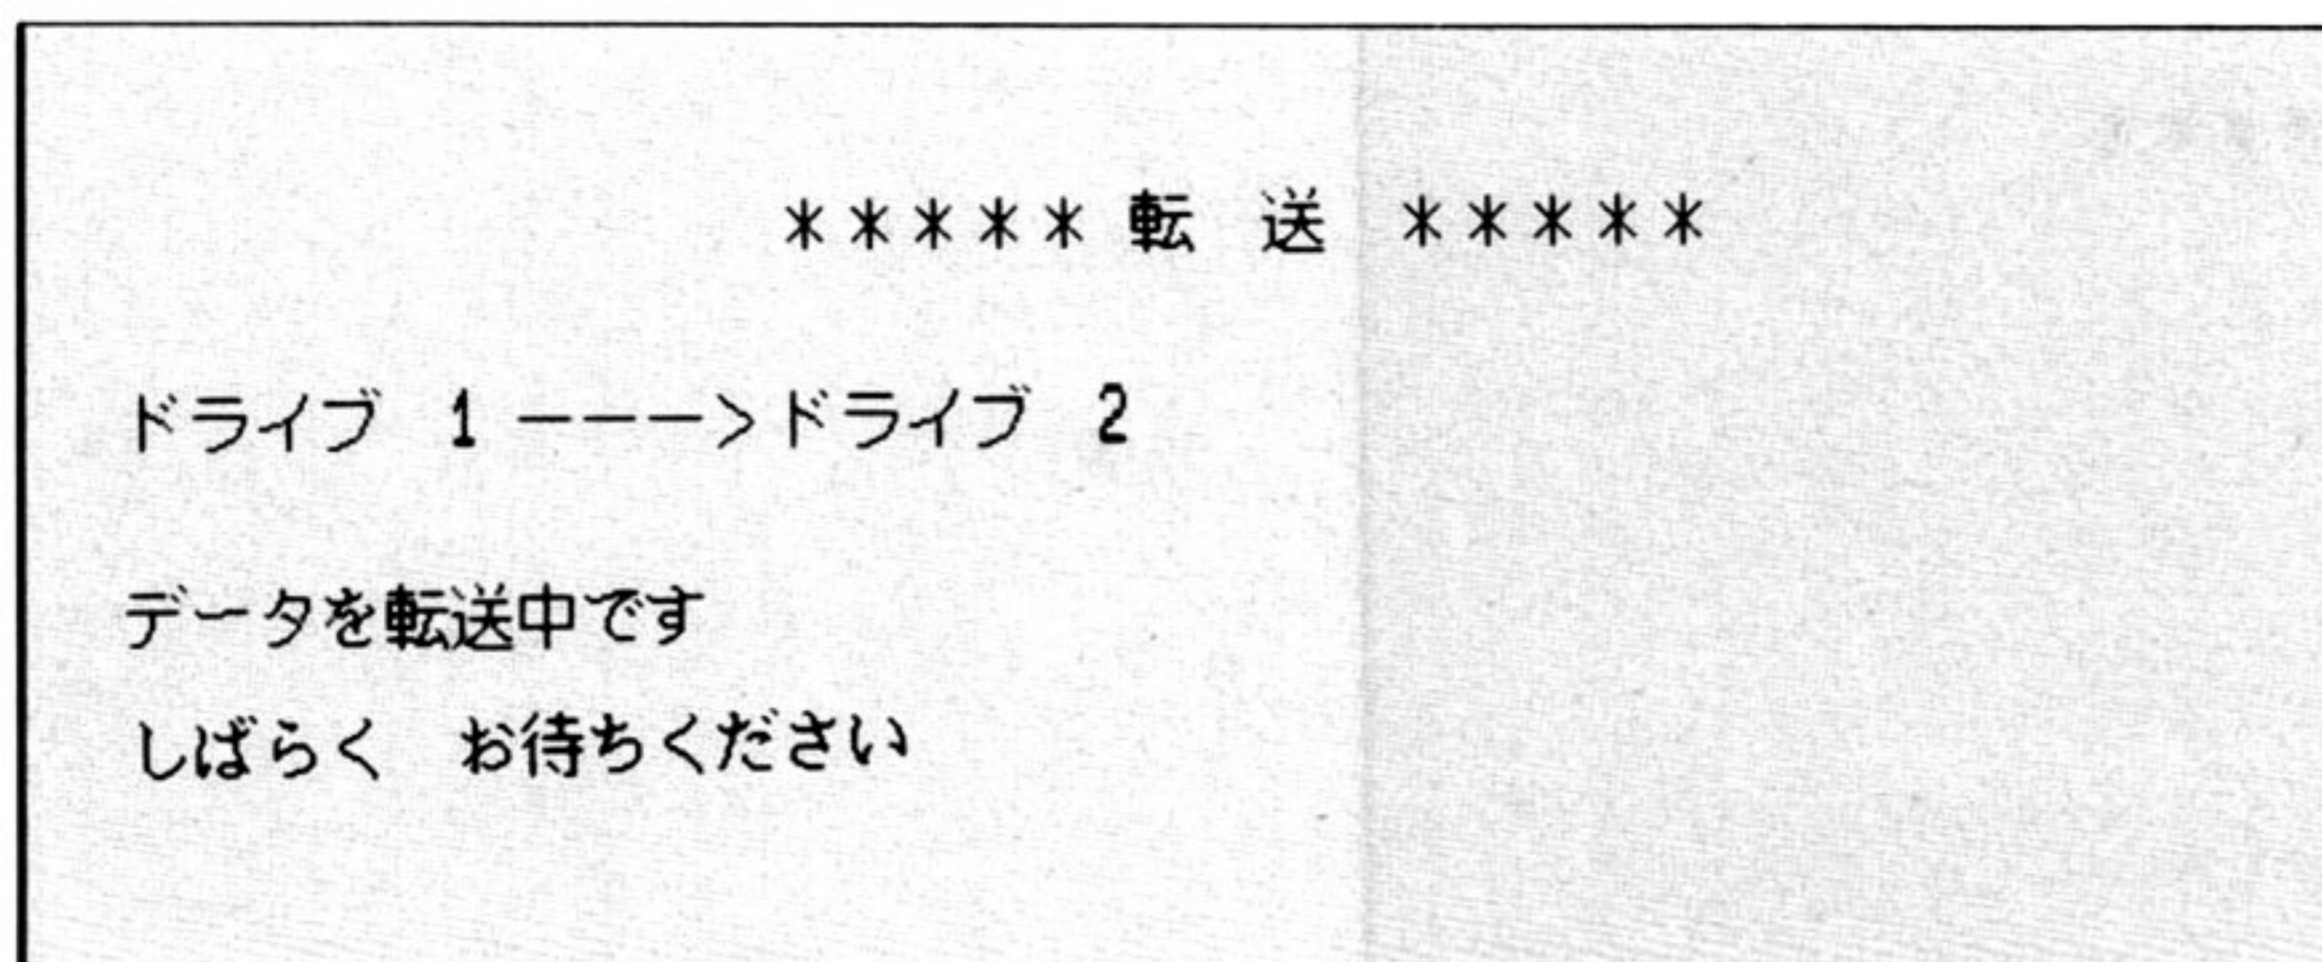 *****転　送　*****
ドライブ　1 ---->ドライブ　2
データを転送中です
しばらく　お待ちください